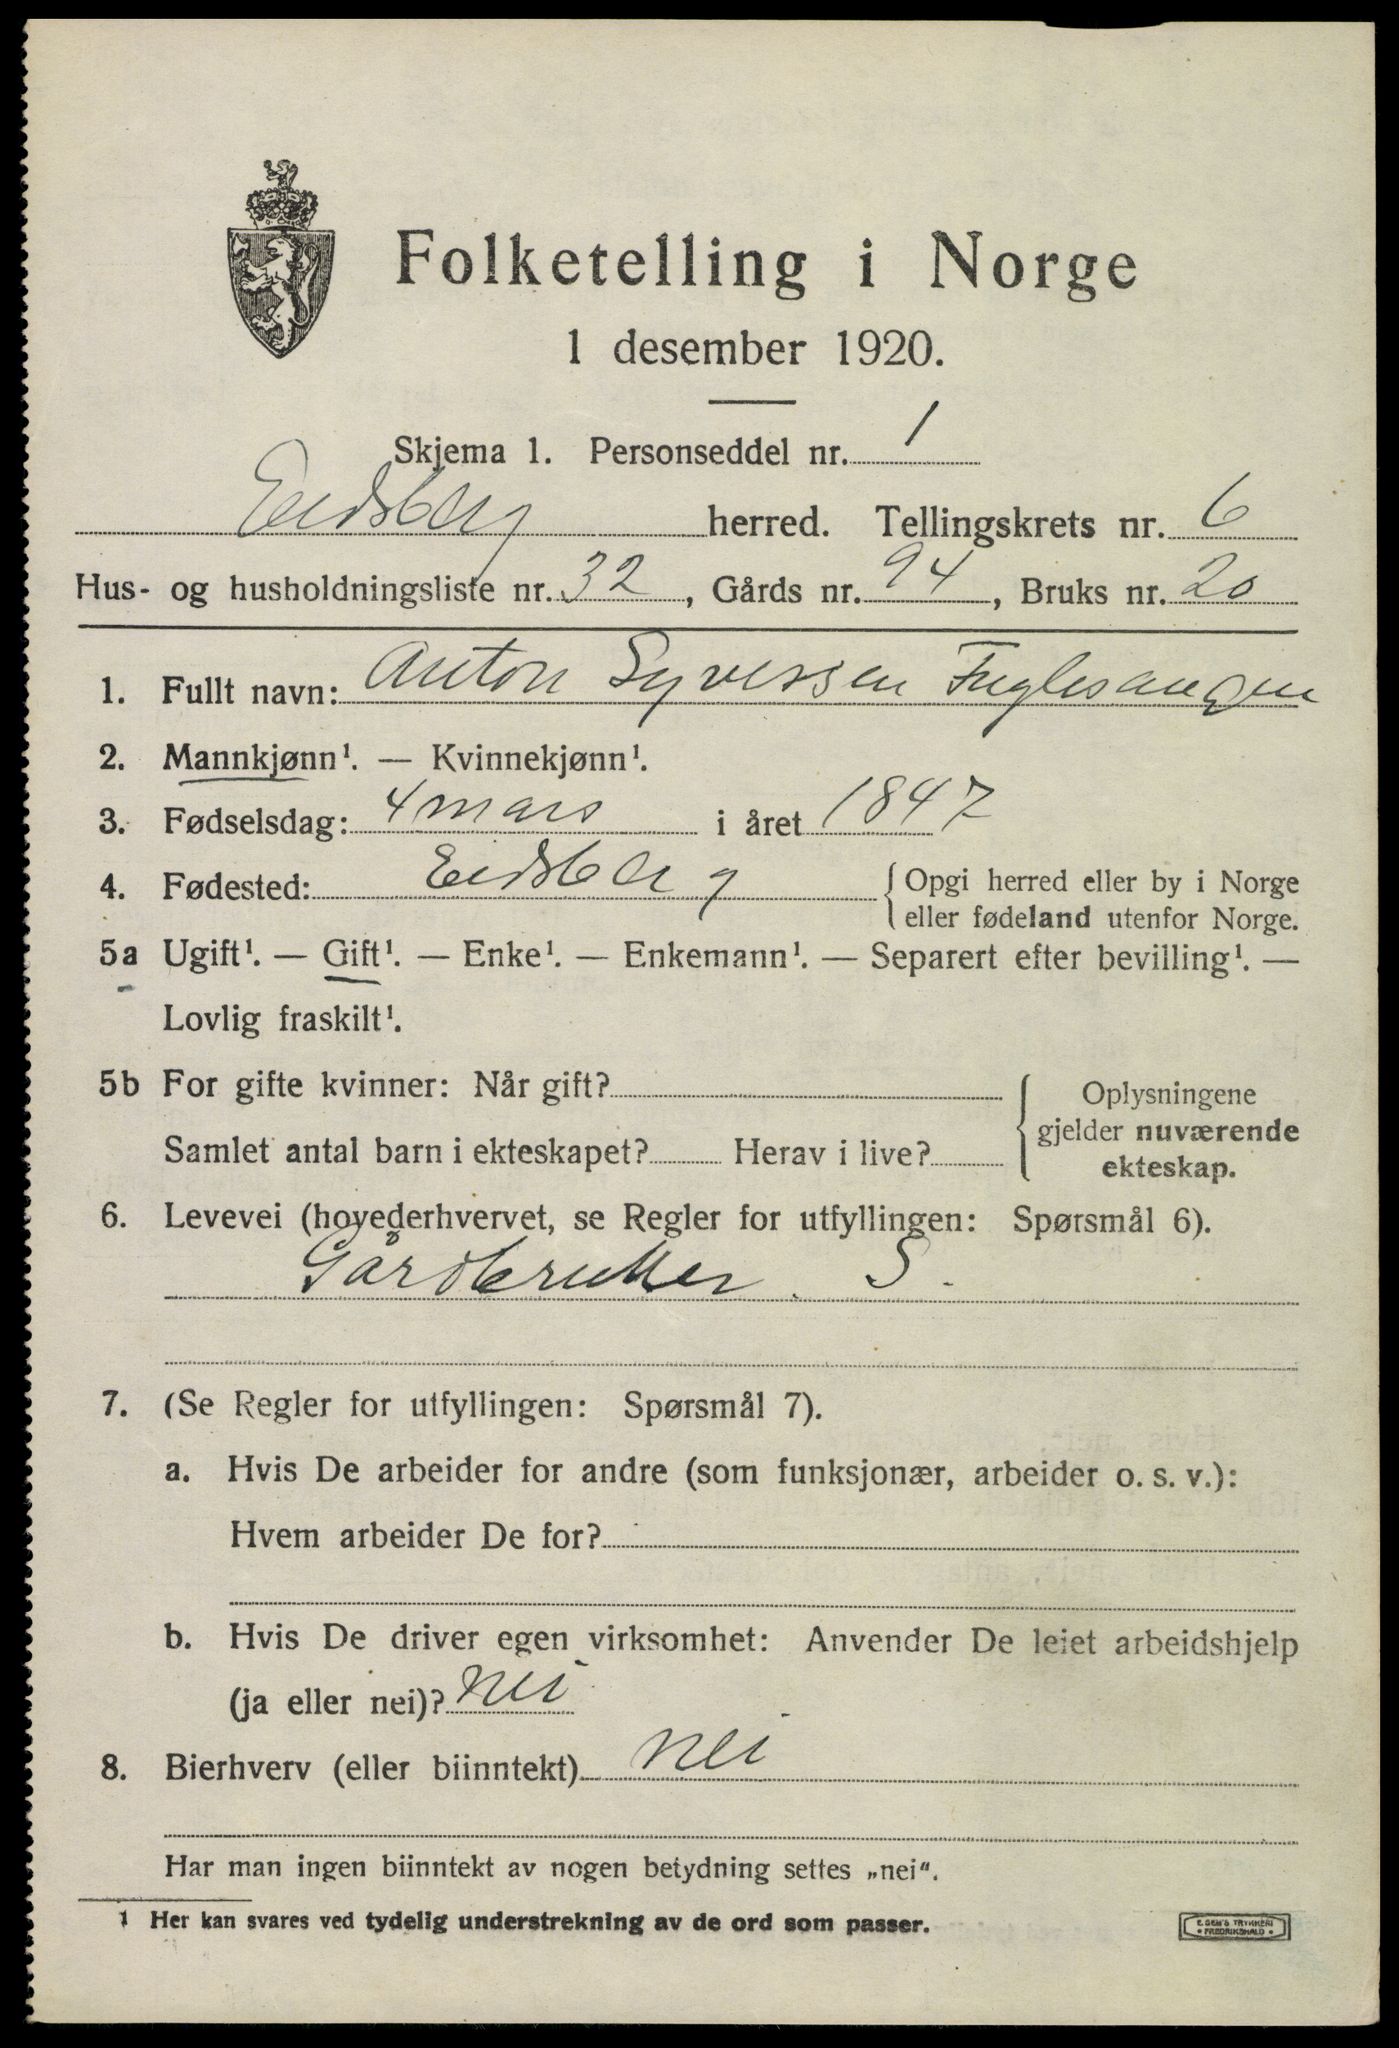 Folketelling i Norge
1 desember 1920.
Skjema 1. Personseddel nr. 1
Eidsberg herred. Tellingskrets nr. 6
Hus- og husholdningsliste nr. 32, Gårds nr. 94, Bruks nr. 20
1. Fullt navn: Anton Syversen Fuglesangen
2. Mannkjønn¹. — Kvinnekjønn¹.
3. Fødselsdag: 4 mars i året 1847
4. Fødested: Eidsberg { Opgi herred eller by i Norge
eller fødeland utenfor Norge.
5a Ugift¹. — Gift¹. — Enke¹. — Enkemann¹. — Separert efter bevilling¹. —
Lovlig fraskilt¹.
5b For gifte kvinner: Når gift? { Oplysningene
gjelder nuværende
Samlet antal barn i ekteskapet? Herav i live?
ekteskap.
6. Levevei (hovederhvervet, se Regler for utfyllingen: Spørsmål 6).
Gårdbruker. S.
7. (Se Regler for utfyllingen: Spørsmål 7).
a. Hvis De arbeider for andre (som funksjonær, arbeider o. s. v.):
Hvem arbeider De for?
b. Hvis De driver egen virksomhet: Anvender De leiet arbeidshjelp
(ja eller nei)? nei
8. Bierhverv (eller biinntekt) nei
Har man ingen biinntekt av nogen betydning settes „nei“.
1 Her kan svares ved tydelig understrekning av de ord som passer.
E. SEM'S TRYKKERI
• FREDRIKSHALD •